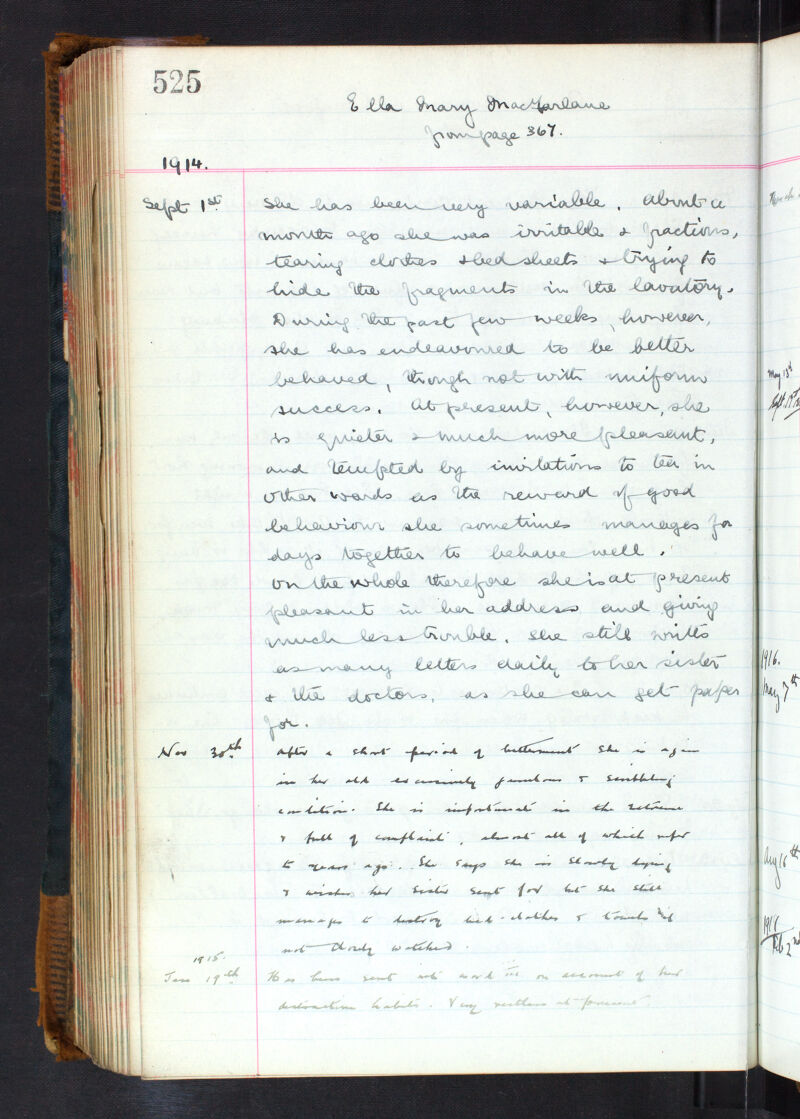 525
Ella Mary MacFarlane
from page 367.
1914.
Sept 1st. She has been very variable. About a
month ago she was irritable & fractious,
tearing clothes & bed sheets & trying to
hide the fragments in the lavatory.
During the past few weeks, however,
she has endeavoured to be better
behaved, though not with uniform
success. At present, however, she
is quieter & much more pleasant,
and tempted by invitations to tea in
other wards as the reward of good
behaviour she sometimes manages for
days together to behave well.
On the whole therefore she is at present
pleasant in her address and giving
much less trouble. She still writes
as many letters daily to her sister
& the doctors, as she can get paper
for.
Nov 30th. After a short period of betterment she is again
in her old excessively querulous & scribbling
condition. She is importunate in the extreme
& full of complaint, almost all of which refer
to years ago. She says she is slowly dying
& wishes her sister sent for but she still
manages to destroy bed-clothes & towels if
not closely watched.
1915.
Jan 19th Has been sent into ward III on account of her
destructive habits. Very restless at present.
May 13th
Sept 1st
1916.
May 7th
Aug 16th
Feb 2nd